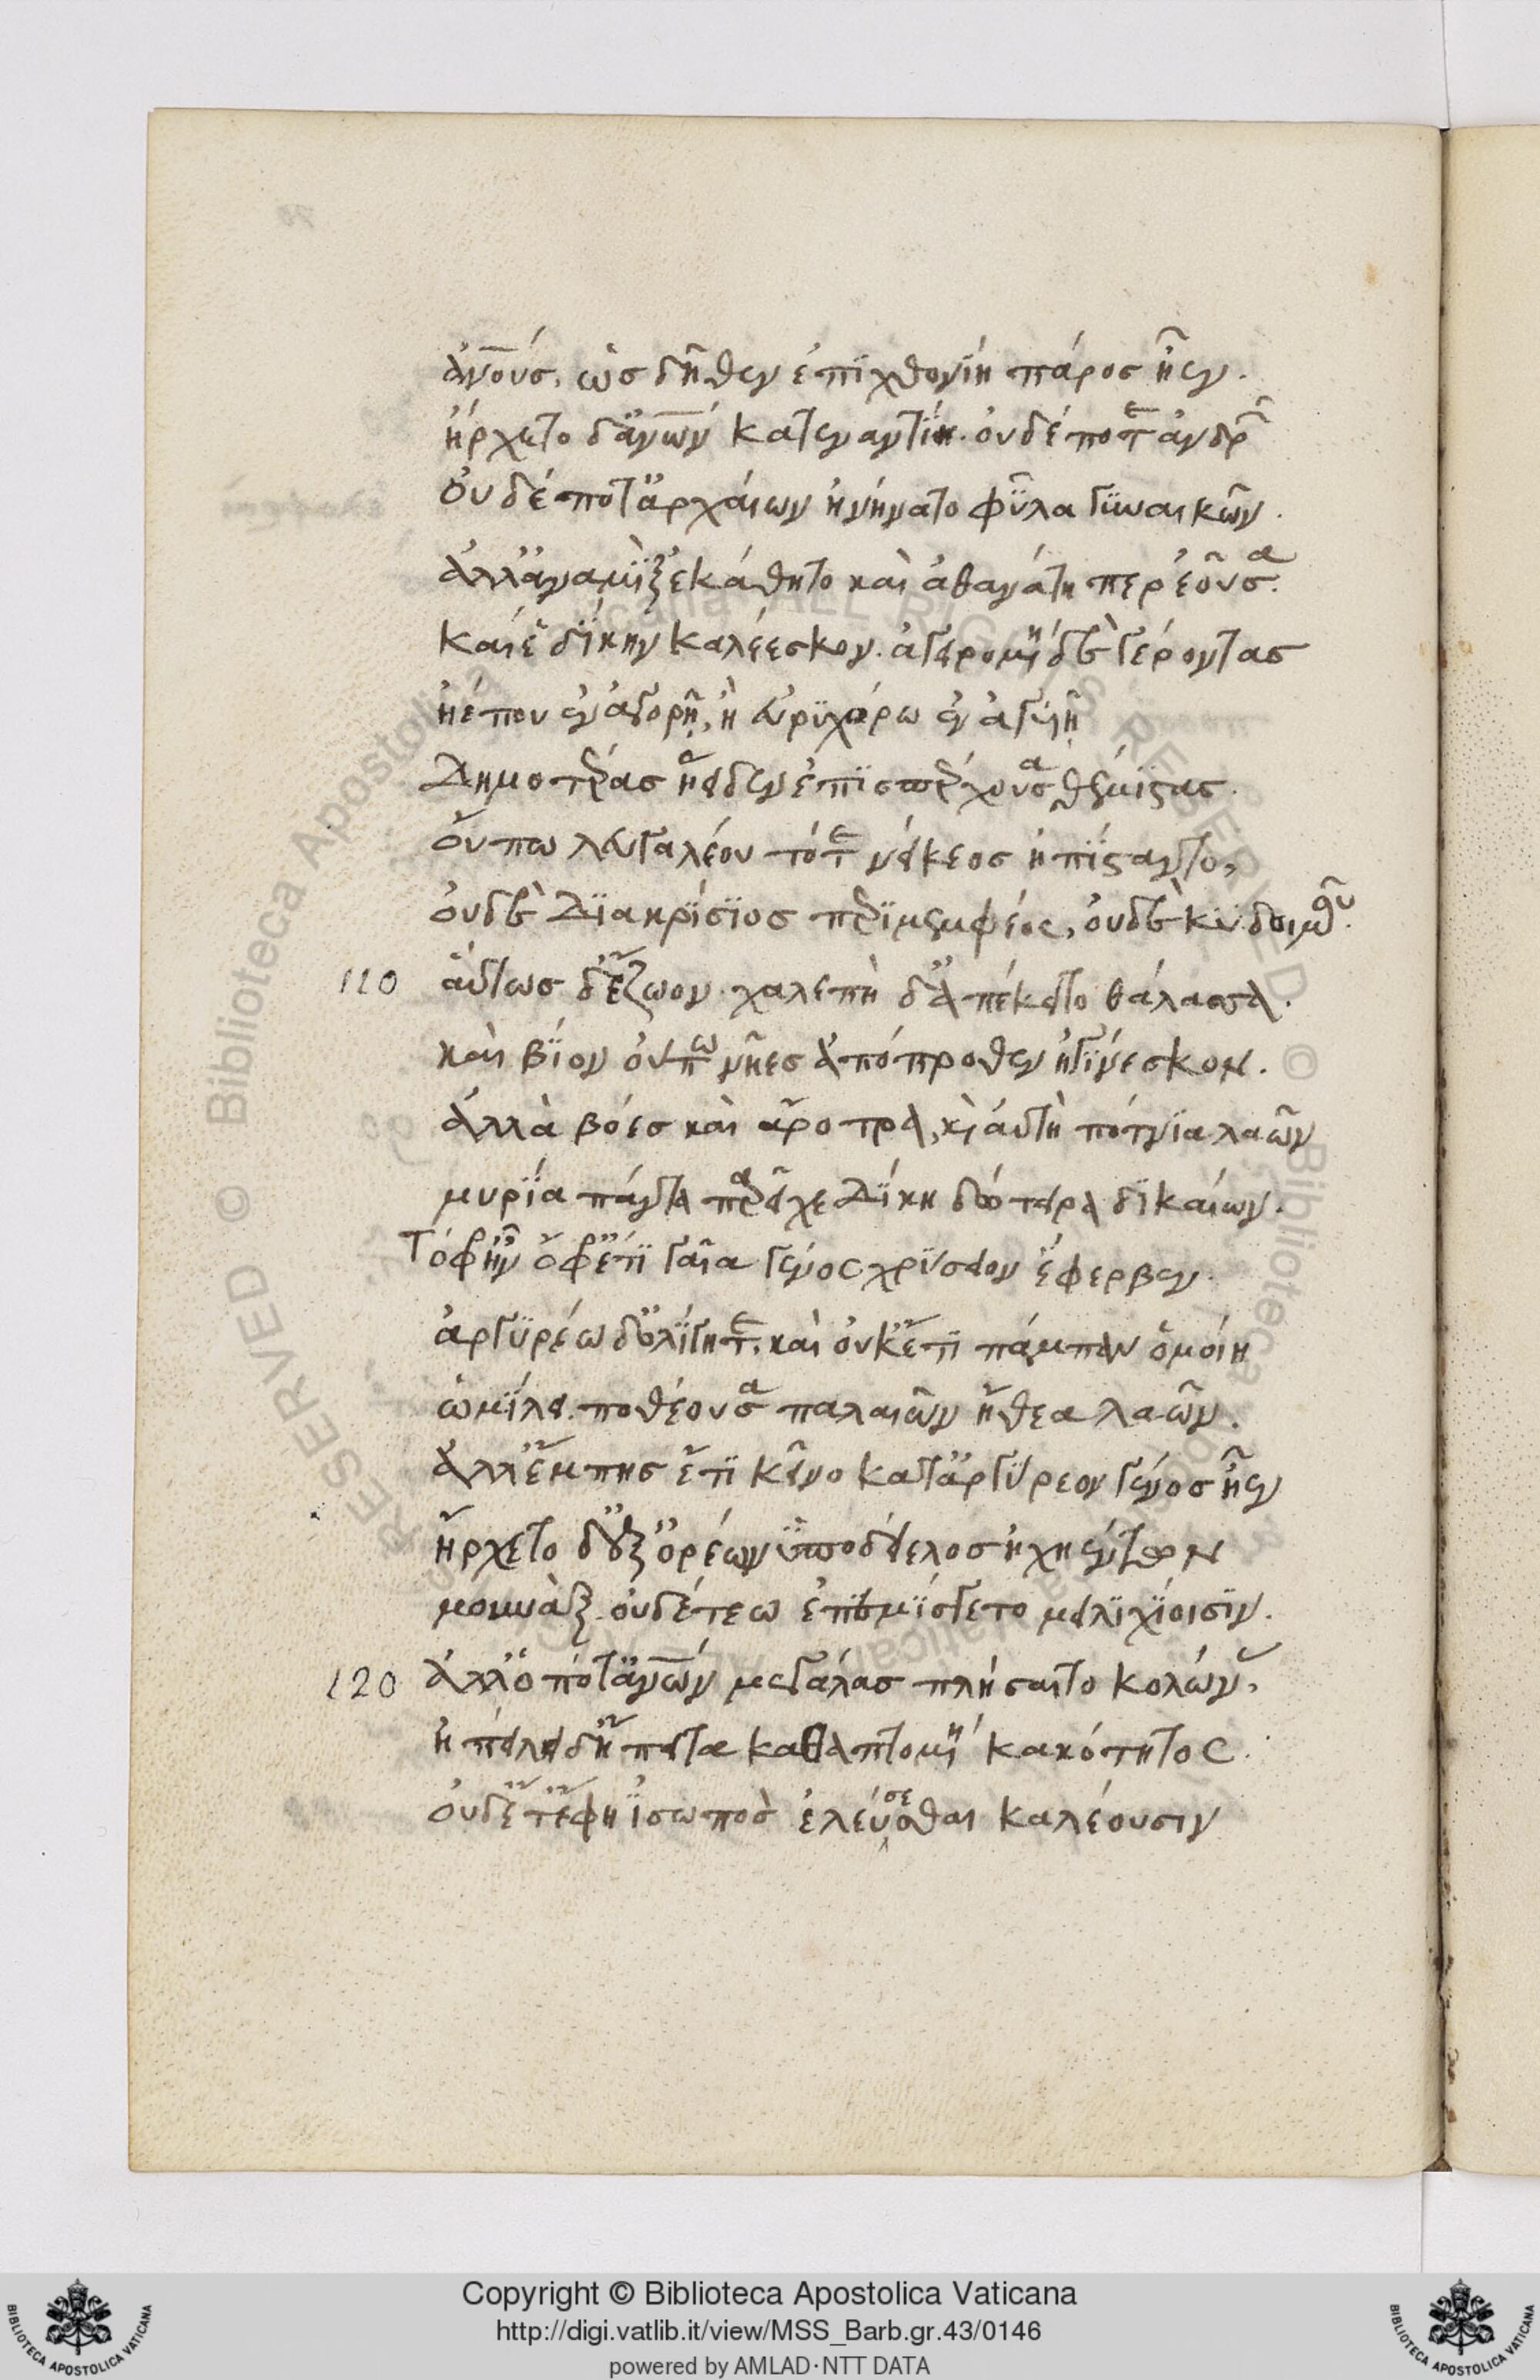 ἀνο̅ύσ, ὡσ δῆθεν ἐπϊχθονΐη πάροσ ἦεν.
ἤρχετο δ' ἀνω̅ν κατεναντΐη. ὀυδέποτε ἀνδρ
Ὀυδέποτ' ἀρχάιων ἠνήνατο φῦλα γυναικῶν.
ἀλλ' ἀναμὶξ ἐκάθητο καὶ ἀθανάτη περ ἐοῦσα.
Καί ἑ δΐκην καλέεσκον. ἀγειρομένη δὲ γέροντασ
ἠέ που ἐν ἀγορῆ, ἢ ἐυρϋχόρω ἐν ἀγυιῆ
Δημοτέρασ ἤειδεν ἐπϊσπέρχουσα θέμιϛας.
ὄυπω λευγαλέου τότε νείκεοσ ἠπΐϛαντο,
ὀυδὲ Δϊακρΐσϊοσ περϊμεμφέος, ὀυδὲ κϋδοιμοῦ.
110 ἄυτωσ δ' ἔζωον. χαλεπὴ δ' ἀπέκειτο θάλασσα.
καὶ βΐον ὀύπω νῆεσ ἀπόπροθεν ἠγΐνεσκον.
ἀλλὰ βόεσ καὶ ἄροτρα, κὶ ἀυτὴ πότνϊα λαῶν
μυρΐα πάντα παρεῖχε Δΐκη δώτειρα δϊκαίων.
Τόφρ' ἦν ὄφρ' ἔτϊ γαῖα γένος χρύσειον ἔφερβεν.
ἀργϋρέω δ' ὀλΐγη τε, καὶ ὀυκ ἔτϊ πάμπαν ὁμόιη
ὡμΐλει. ποθέουσα παλαιῶν ἤθεα λαῶν.
ἀλλ' ἔμπησ ἔτϊ κεῖνο κατ' ἀργΰρεον γένοσ ἦεν
ἤρχετο δ' ἐξ ὀρέων ὑποδείελοσ ἠχηέντων
μουνὰξ. ὀυδέ τεω ἐπϊμΐσγετο μειλϊχΐοισϊν.
120 ἀλλ' ὁπότ' ἀνω̅ν μεγάλασ πλήσαιτο κολών,
ἠπείλει δὴ 'πειτα καθαπτομένη κακότητος.
ὀυδ' ἔτ' ἔφη ἰσωποσ ἐλεύσεσθαι καλέουσιν
Copyright © Biblioteca Apostolica Vaticana
http://digi.vatlib.it/view/MSS_Barb.gr.43/0146
powered by AMLAD·NTT DATA